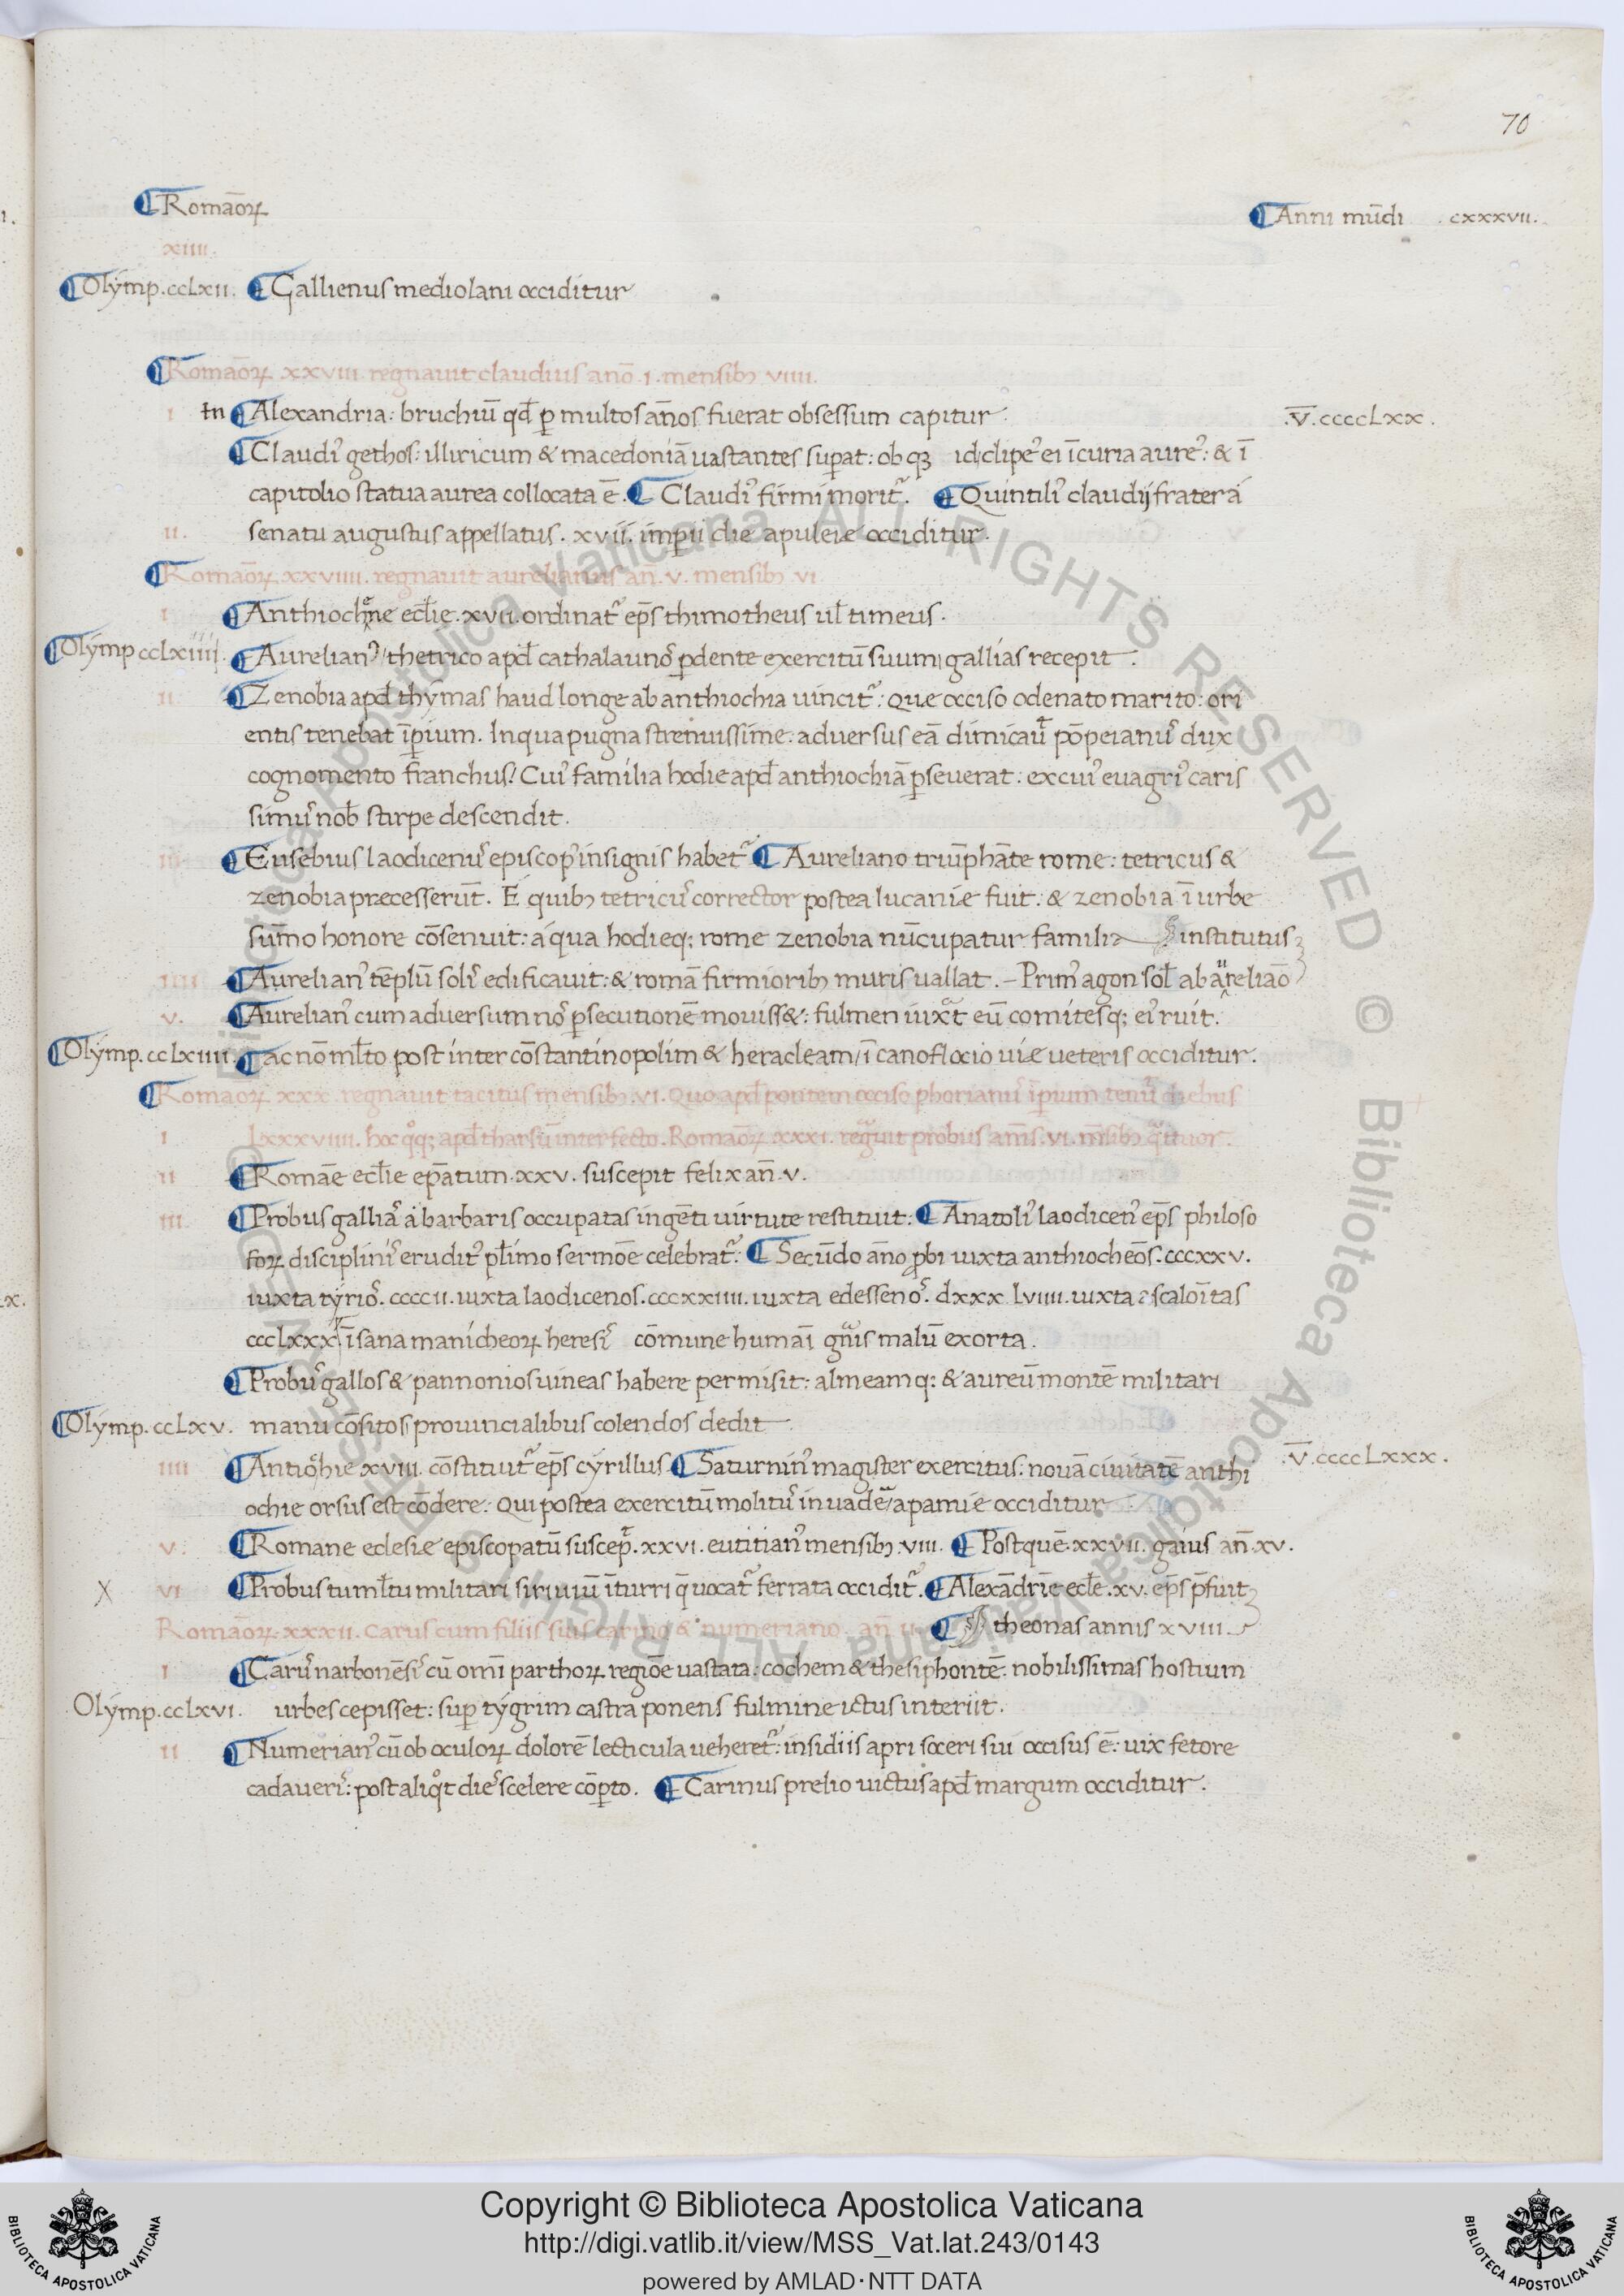 70
¶ Romāoꝝ
¶ Anni mūdi . cxxxvii.
xiiii.
¶ Olymp. ccLxii. ¶ Gallienus mediolani occiditur
¶ Romāoꝝ xxviii regnavit claudius anō .i. mensibꝫ viiii.
i In ¶ Alexandria: bruchiū qđ ꝑ multos an̄os fuerat obsessum capitur. .V̄.ccccLxx.
¶ Claudiꝰ gethos: illiricum & macedoniā uastantes suꝑat: ob qꝫ id clipeꝰ ei ī curia aureꝰ: & ī
capitolio statua aurea collocata ē. ¶ Claudiꝰ firmi moritᷣ. ¶ Quintiliꝰ claudij frater á
ii. senatu augustus appellatus. xvii. imꝑii die apuleie occiditur.
¶ Romāoꝝ xxviiii. regnauit aurelianus an̄. v. mensibꝫ vi
i ¶ Anthiochene eccl̄ie .xvii. ordinatᷣ ep̄s thimotheus ul̄ timeus.
¶ Olymp ccLxiiii. ¶ Aurelianꝰ thetrico apđ cathalaunoˢ ꝓdente exercitū suum gallias recepit.
ii ¶ Zenobia apđ thymas haud longe ab anthiochia uincitᷣ: que occiso odenato marito: ori
entis tenebat īꝑium. In qua pugna strenuissime: aduersus eā dimicau̅ᵗ pōpeianuˢ dux
cognomento franchus? Cuiꝰ familia hodie apđ anthiochiā ꝑseuerat: ex cuiꝰ euagriꝰ caris
simuˢ nob̄ stirpe descendit.
iii ¶ Eusebius laodicenuˢ episcopꝰ insignis habetᷣ ¶ Aureliano triūphāte rome: tetricus &
zenobia præcesserūt. E quibꝫ tetricuˢ corrector postea lucanie fuit: & zenobia ī urbe
sūmo honore cōsenuit: á qua hodieqꝫ rome zenobia nūcupatur familia institutus
iiii ¶ Aurelianꝰ tēplū soliˢ edificauit: & romā firmioribꝫ muris uallat. – Primꝰ agon sol̄ ab aureliāo
v. ¶ Aurelianꝰ cum aduersum noˢ ꝑsecutionē mouiss&: fulmen iuxᵃt eū comitesqꝫ eiꝰ ruit.
¶ Olymp. ccLxiiii. ¶ ac nō ml̄to post inter cōstantinopolim & heracleam/ ī canoflocio uie ueteris occiditur.
¶ Romaoꝝ xxx. regnauit tacitus mensibꝫ .vi. Quo apđ pontem occiso phorianuˢ īꝑium tenuᵗ diebus
i Lxxxviiii. hoc qͦqꝫ apđ tharsū interfecto. Romāoꝝ xxxi. regᵃuit probus anīs .vi. mēsibꝫ qᵃttuor.
ii ¶ Romāe eccl̄ie ep̄atum .xxv. suscepit felix an̄. v.
iii. ¶ Probus galliaˢ a barbaris occupatas ingēti uirtute restituit: ¶ Anatoliꝰ laodicenꝰ ep̄s philoso
foꝝ disciplinīˢ eruditꝰ pl̄imo sermōe celebratᷣ: ¶ Secūdo an̄o ꝓbi iuxta anthiocheōs. cccxxv.
iuxta tyrioˢ. ccccii. iuxta laodicenos. cccxxiiii. iuxta edessenoˢ. dxxx Lviiii. iuxta ascalōitas
cccLxxx. īsana manicheoꝝ heresiˢ cōmune humaī gn̄ᵃis malū exorta.
¶ Probuˢ gallos & pannonios uineas habere permisit: almeamqꝫ & aureū montē militari
¶ Olymp. ccLxv. manu cōsitos prouincialibus colendos dedit
iiii ¶ Antiochie xviii. cōstituitᷣ ep̄s cyrillus ¶ Saturninꝰ magister exercitus: nouā ciuitatē anthi .V̄.ccccLxxx.
ochie orsus est cōdere: qui postea exercitū molituˢ inuadeᷓ apamie occiditur.
v. ¶ Romane eclesie episcopatū suscep̄ᵗ. xxvi. eutitianꝰ mensibꝫ .viii. ¶ Post quē .xxvii. gaius an̄. xv.
X vi ¶ Probus tuml̄tu militari sirmiū ī turri q̄ uocatᷣ ferrata occiditᷣ. ¶ Alexādrīe eccl̄e .xv. ep̄s p̄fuit
Romāoꝝ xxxii. Carus cum filiis suis carino & numeriano. an̄ ii ¶ theonas annis xviii.
i ¶ Caruˢ narbonēsiˢ cū omī parthoꝝ regiōe uastata: cochem & thesiphontē: nobilissimas hostium
Olymp. ccLxvi. urbes cepisset: suꝑ tygrim castra ponens fulmine ictus interiit.
ii ¶ Numerianꝰ cū ob oculoꝝ dolorē lecticula ueheretᷣ: insidiis apri soceri sui occisus ē: uix fetore
cadaueriˢ: post aliqͦt dieˢ scelere cōꝑto. ¶ Carinus prelio uictus apđ margum occiditur.
Copyright © Biblioteca Apostolica Vaticana
http://digi.vatlib.it/view/MSS_Vat.lat.243/0143
powered by AMLAD·NTT DATA